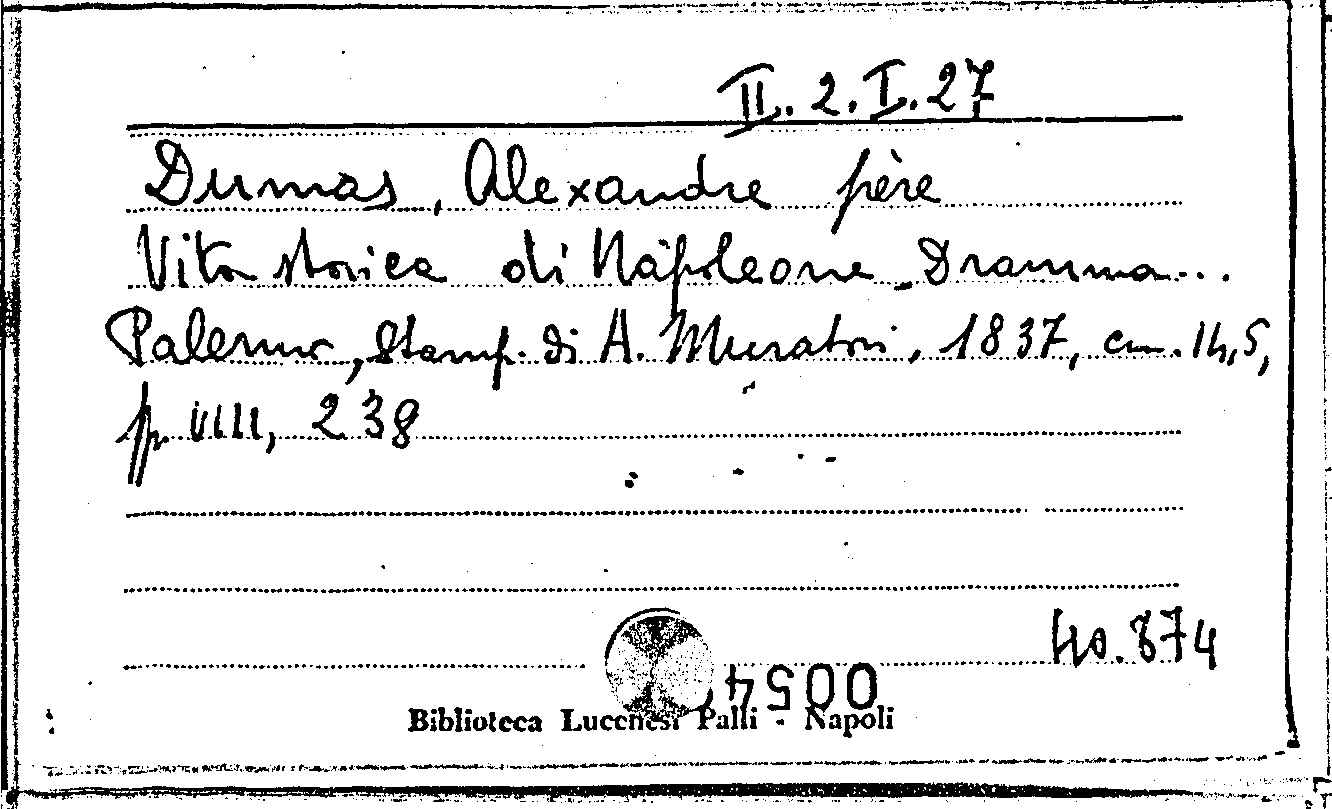 II. 2. I. 27
Dumas, Alexandre père
Vita storica di Napoleone. Dramma...
Palermo, Stamp. di A. Muratori, 1837, cm. 14,5,
pp. VIII, 238
40.874
0054
Biblioteca Lucchesi Palli - Napoli